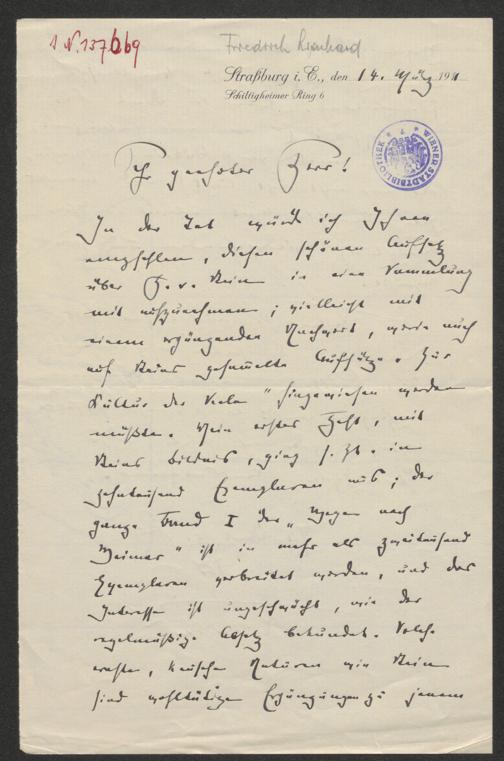 I N. 137669
Friedrich Lienhard
Straßburg i. E., den 14. März 1911
Schiltigheimer Ring 6
WIENER STADTBIBLIOTHEK
Sehr geehrter Herr!
In der Tat würde ich Ihnen
empfehlen, diesen schönen Aufsatz
über H. v. Stein in eine Sammlung
mit aufzunehmen; vielleicht mit
einem ergänzenden Nachwort, worin auch
auf Steins gesammelte Aufsätze „Zur
Kultur der Seele" hingewiesen werden
müßte. Mein erstes Heft, mit
Steins Bildnis, ging s. Zt. in
zehntausend Exemplaren aus; der
ganze Band I der „Wege nach
Weimar" ist in mehr als zweitausend
Exemplaren verbreitet worden, und das
Interesse ist ungeschwächt, wie der
regelmäßige Absatz bekundet. Solche
ernste, keusche Naturen wie Stein
sind wohltätige Ergänzungen zu jenem